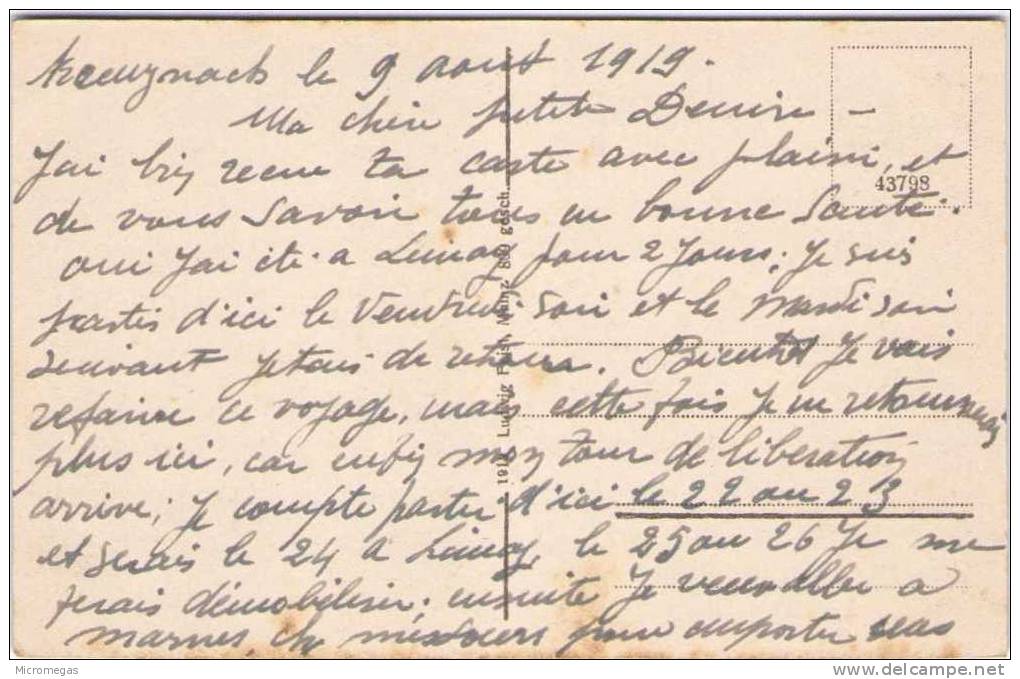 Kreuznach le 9 aout 1919.
Ma chère petite Denise -
J'ai bien recue ta carte avec plaisir, et
de vous savoir tous en bonne santé.
oui J'ai été a Limay pour 2 Jours; Je suis
partis d'ici le Vendredi soir et le Mardi soir
suivant J'etais de retour. Bientot Je vais
refaire ce voyage, mais cette fois Je ne retournerai
plus ici, car enfin mon tour de libération
arrive; Je compte partir d'ici le 22 ou 23
et serais le 24 a Limay, le 25 ou 26 Je me
ferais démobiliser; ensuite Je veux aller a
marnes chez pour emporter
43798
1917 Ludwig Feist, Mainz 869 gesch.
Micromegas
delcampe.net